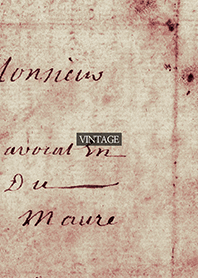 Monsieur
VINTAGE
avocat En
Du
Maure